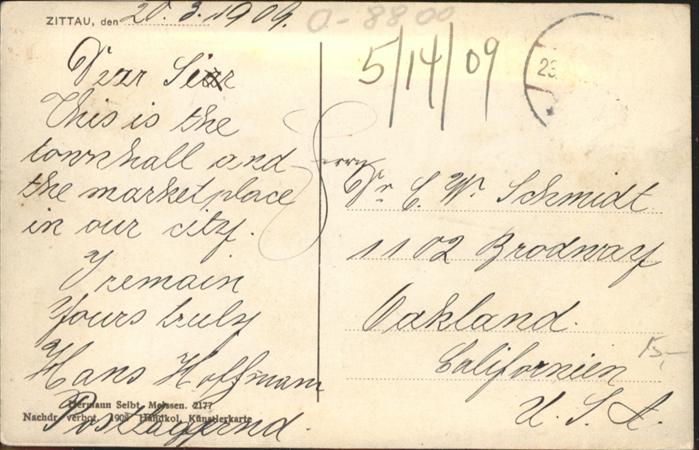 ZITTAU, den 20. 3. 1909.
Dear Seir
This is the
townhall and
the marketplace
in our city.
I remain
Yours truly
Hans Hoffmann
Postlagernd.
Hermann Seibt, Meissen. 2177
Nachdr. verbot. 190 Handkol. Künstlerkarte
0-8800
5/14/09
23.
Herrn
Dr. C. W. Schmidt
1102 Brodway
Oakland.
Californien
U. S. A.
15,-